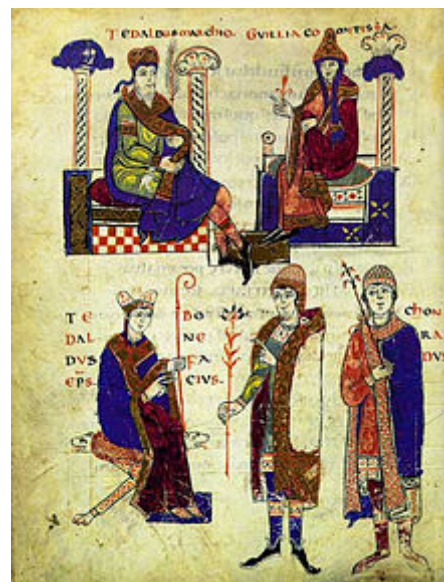 TEDALDUS MARCHIO. GUILLIA COMITISSA
TE
DAL
DVS
EPS.
BO
NE
FA
CIVS.
CHON
RA
DVS